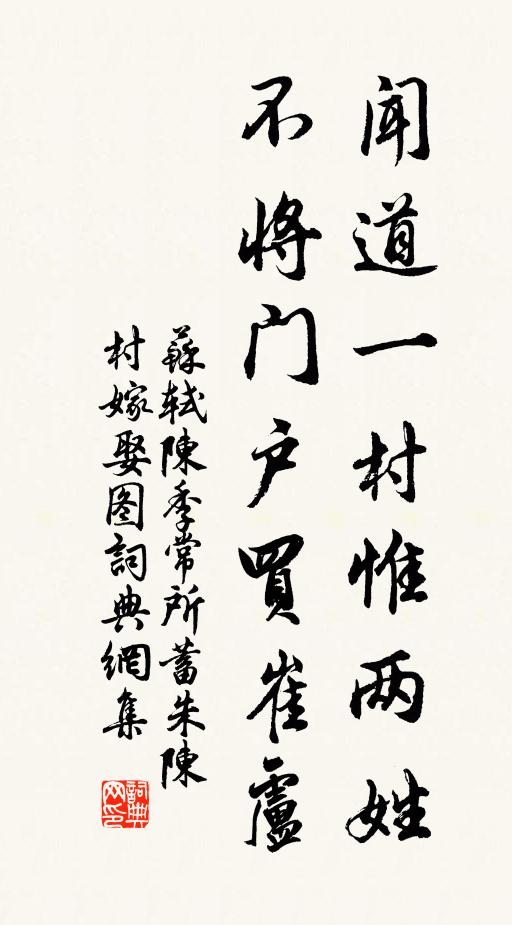 聞道一村惟两姓
不將門户買崔盧
蘇軾陳季常所蓄朱陳
村嫁娶图詞典網集
詞典
网印